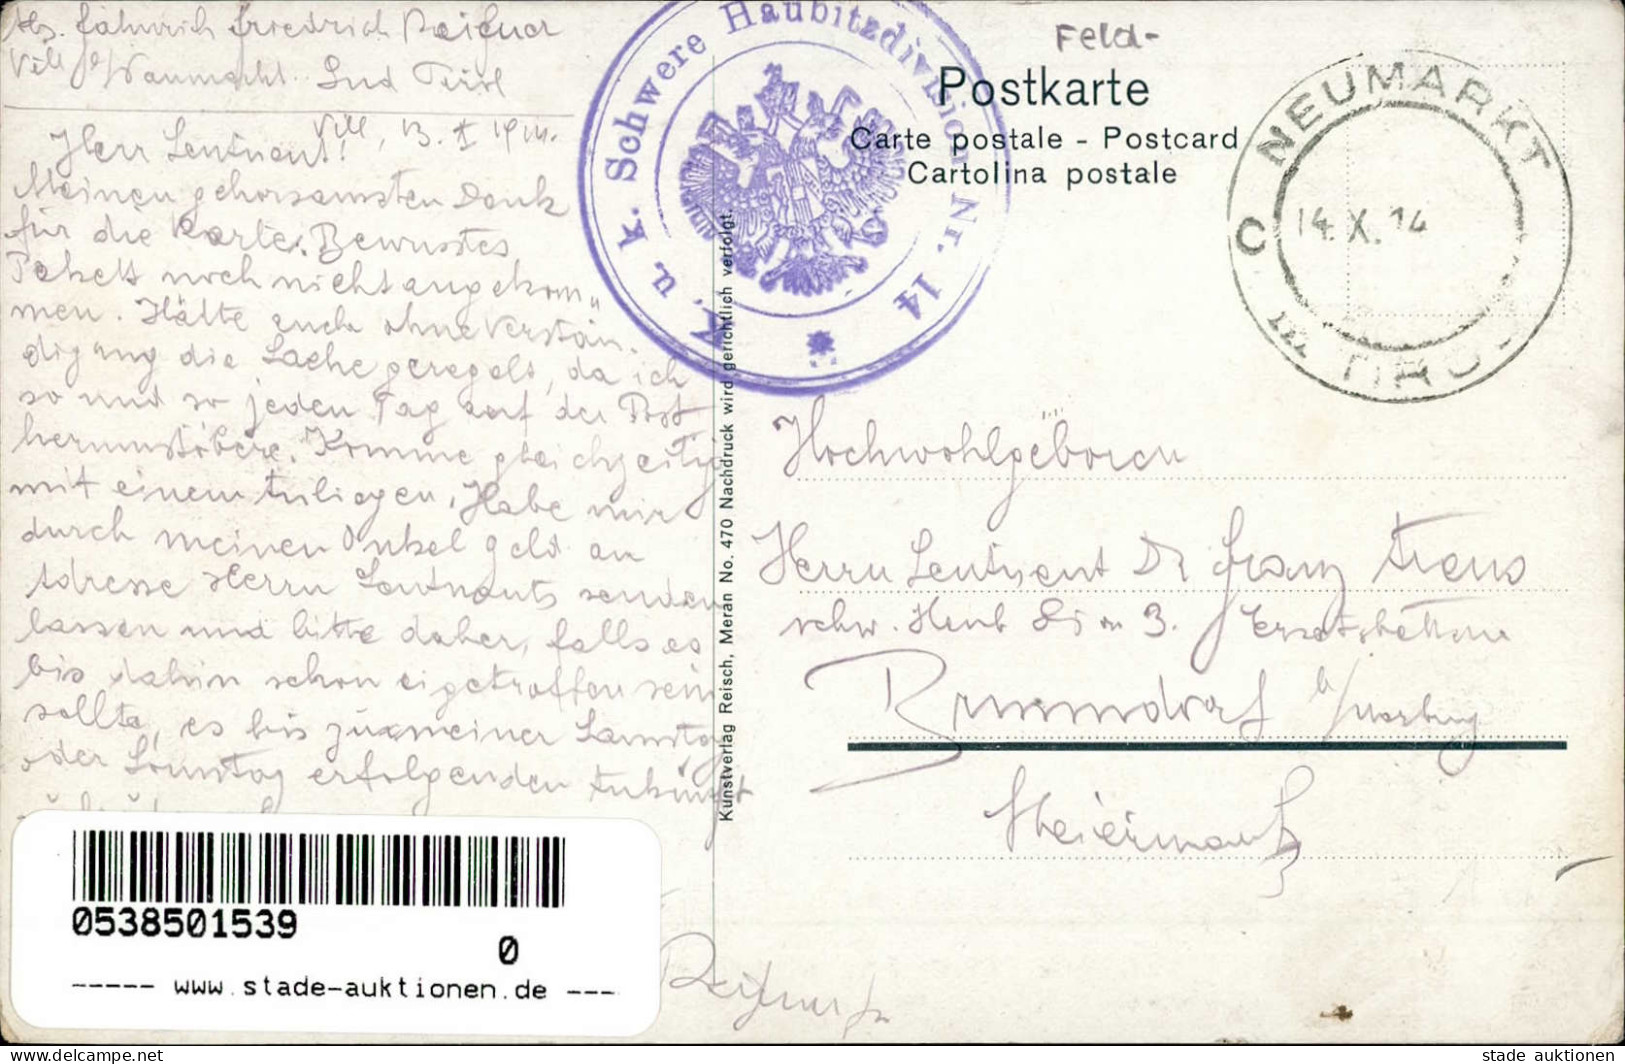 Abs. Fähnrich Friedrich
Vill b/Neumarkt Süd Tirol
Vill, 13. X 1914.
Herr Leutnant!
Meinen gehorsamsten Dank
für die Karte. Bewusstes
Paket noch nicht angekom„
men. Hätte auch ohne Verstän„
digung die Sache geregelt, da ich
so und so jeden Tag auf der Post
herumstöbere. Komme gleichzeitig
mit einem Anliegen. Habe mir
durch meinen Onkel Geld an
Adresse Herrn Leutnants senden
lassen und bitte daher, falls es
bis dahin schon eigetroffen sein
sollte, es bis zu meiner Samstag
oder Sonntag erfolgenden Ankunft
K. u. k. Schwere Haubitzdivision Nr. 14 *
Feld-
Postkarte
Carte postale - Postcard
Cartolina postale
C NEUMARKT
14.X.14
in TIROL
Kunstverlag Reisch, Meran No. 470 Nachdruck wird gerichtlich verfolgt.
Hochwohlgeboren
Herrn Leutnant Dr Franz
schw. Haub Div 3. Ersatzbatterie
Brunndorf b/Marburg
Steiermark
0538501539
0
----- www.stade-auktionen.de ---
www.delcampe.net
stade auktionen